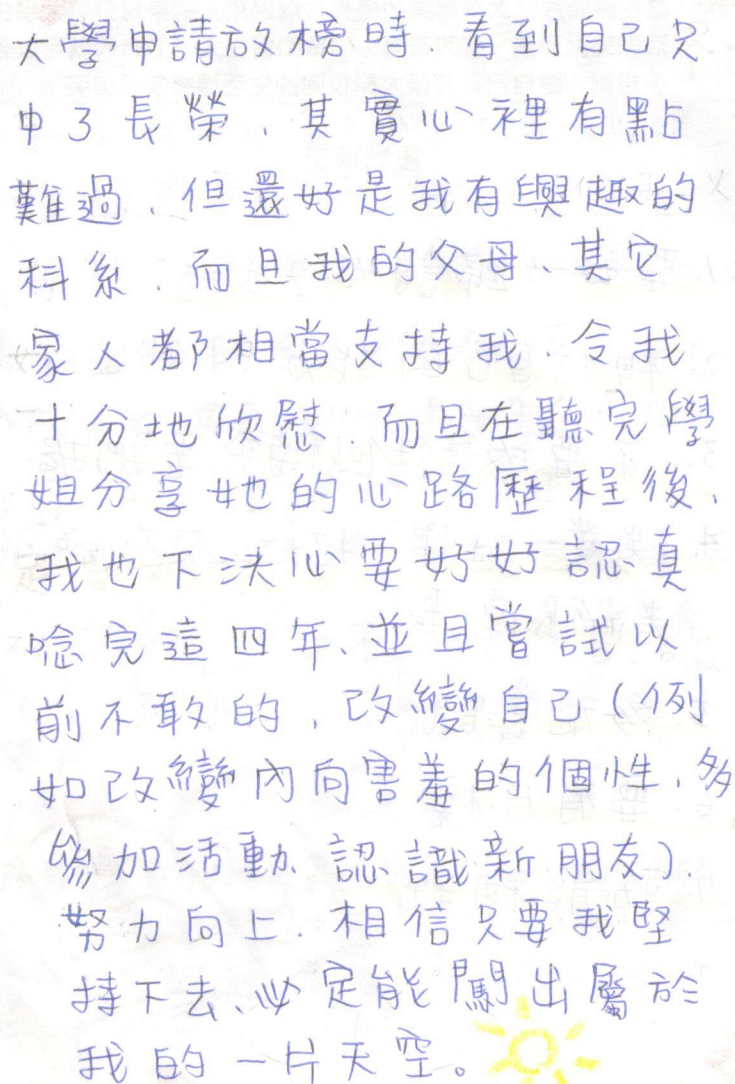 大學申請放榜時、看到自己只
中了長榮、其實心裡有點
難過、但還好是我有興趣的
科系、而且我的父母、其它
家人都相當支持我、令我
十分地欣慰、而且在聽完學
姐分享她的心路歷程後、
我也下決心要好好認真
唸完這四年、並且嘗試以
前不敢的、改變自己(例
如改變內向害羞的個性、多
參加活動、認識新朋友)、
努力向上、相信只要我堅
持下去、必定能闖出屬於
我的一片天空。